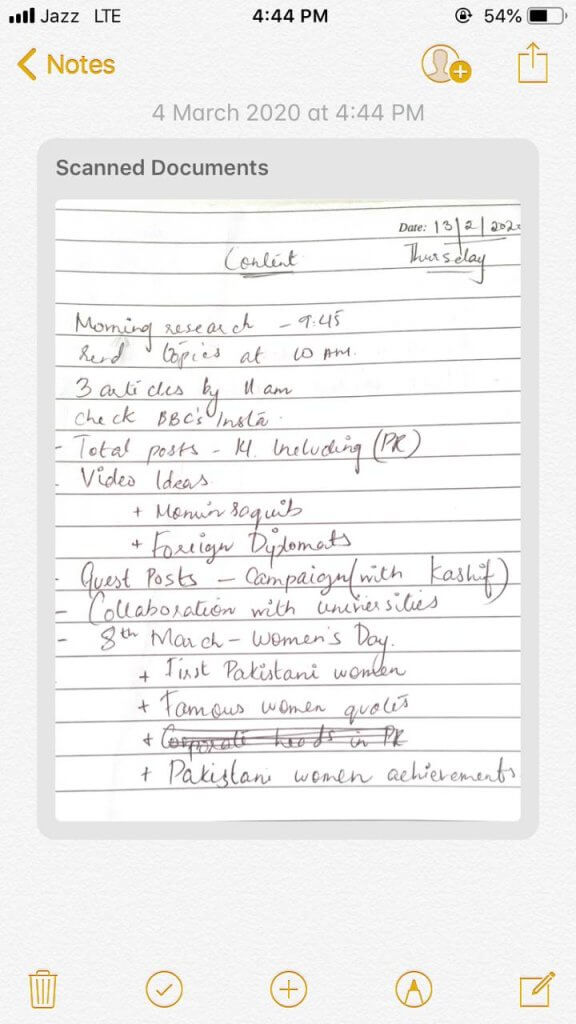 Jazz LTE 4:44 PM 54%
Notes
4 March 2020 at 4:44 PM
Scanned Documents
Date: 13/2/202
Content Thursday
Morning research - 9:45
Send topics at 10 AM.
3 articles by 11 am
check BBC's Insta.
- Total posts - 14. Including (PR)
- Video Ideas
+ Momin Saquib
+ Foreign Diplomats
- Guest Posts - Campaign (with Kashif)
- Collaboration with universities
- 8th March - Women's Day.
+ First Pakistani women
+ Famous women quotes
+ Corporate heads in PK
+ Pakistani women achievements